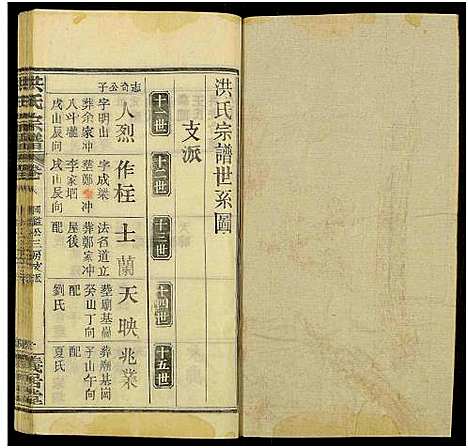 洪氏宗譜世系圖
支派
十一世
十二世
十三世
十四世
十五世
志奇公子
人烈
字明山
葬余家冲
八斗壠
戌山辰向
作柱
字成梁
葬鄭家冲
李家塆
戌山辰向
士蘭
法省道立
葬鄭家冲
屋後
配
天映
葬廟基崗
癸山丁向
配
劉氏
兆業
葬廟基岡
子山午向
配
夏氏
洪氏宗譜